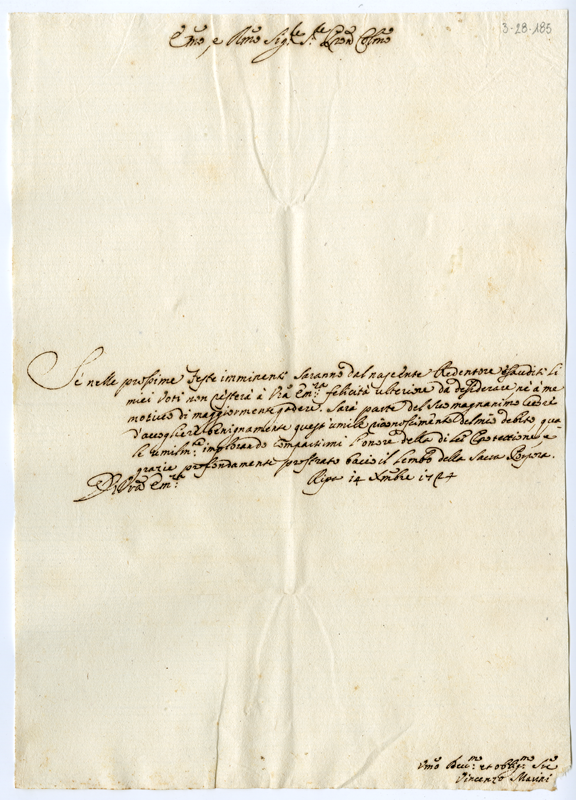 3-28-185
Em̃o, e Rm̃o Sig.re S.re Pr̃on Colm̃o
Se nelle prossime Feste imminenti saranno dal nascente Redentore esauditi li
miei voti non resterà à Vr̃a Em.za felicità ulteriore da desiderare, nè à me
motivo di maggiormente godere. Sarà parte del suo magnanimo
d'accogliere benignamente quest'umile riconoscimento del mio debito, qua-
le umilm.te implorando compartirmi l'onore della di lei Protezione, e
grazie profondamente prostrato bacio il lembo della Sacra Porpora.
Di Vr̃a Em.za
Ripa 14 Xmbre 1724
Vm̃o Dev.mo et obblig.mo Sre
Vincenzo Marini